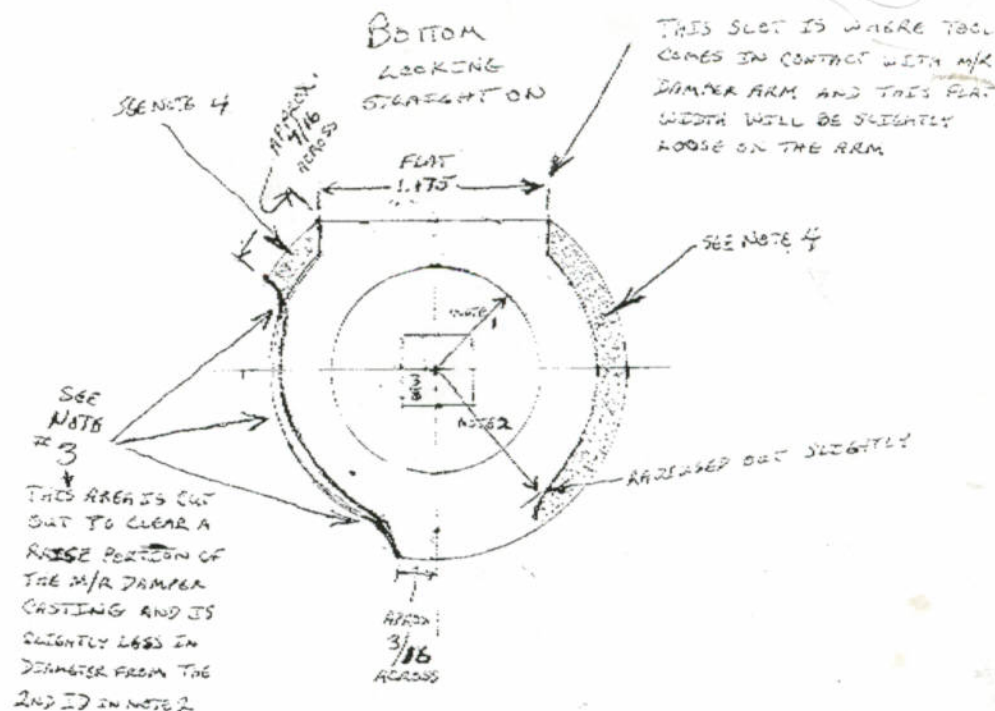 BOTTOM
LOOKING
STRAIGHT ON
THIS SLOT IS WHERE TOOL
COMES IN CONTACT WITH M/R
DAMPER ARM AND THIS FLAT
WIDTH WILL BE SLIGHTLY
LOOSE ON THE ARM
SEE NOTE 4
APPROX.
ACROSS
FLAT
SEE NOTE 4
NOTE 1
NOTE 2
SEE
NOTE
# 3
RADIUSED OUT SLIGHTLY
THIS AREA IS CUT
OUT TO CLEAR A
RAISE PORTION OF
THE M/R DAMPER
CASTING AND IS
SLIGHTLY LESS IN
DIAMETER FROM THE
2ND ID IN NOTE 2
APROX
3/16
ACROSS